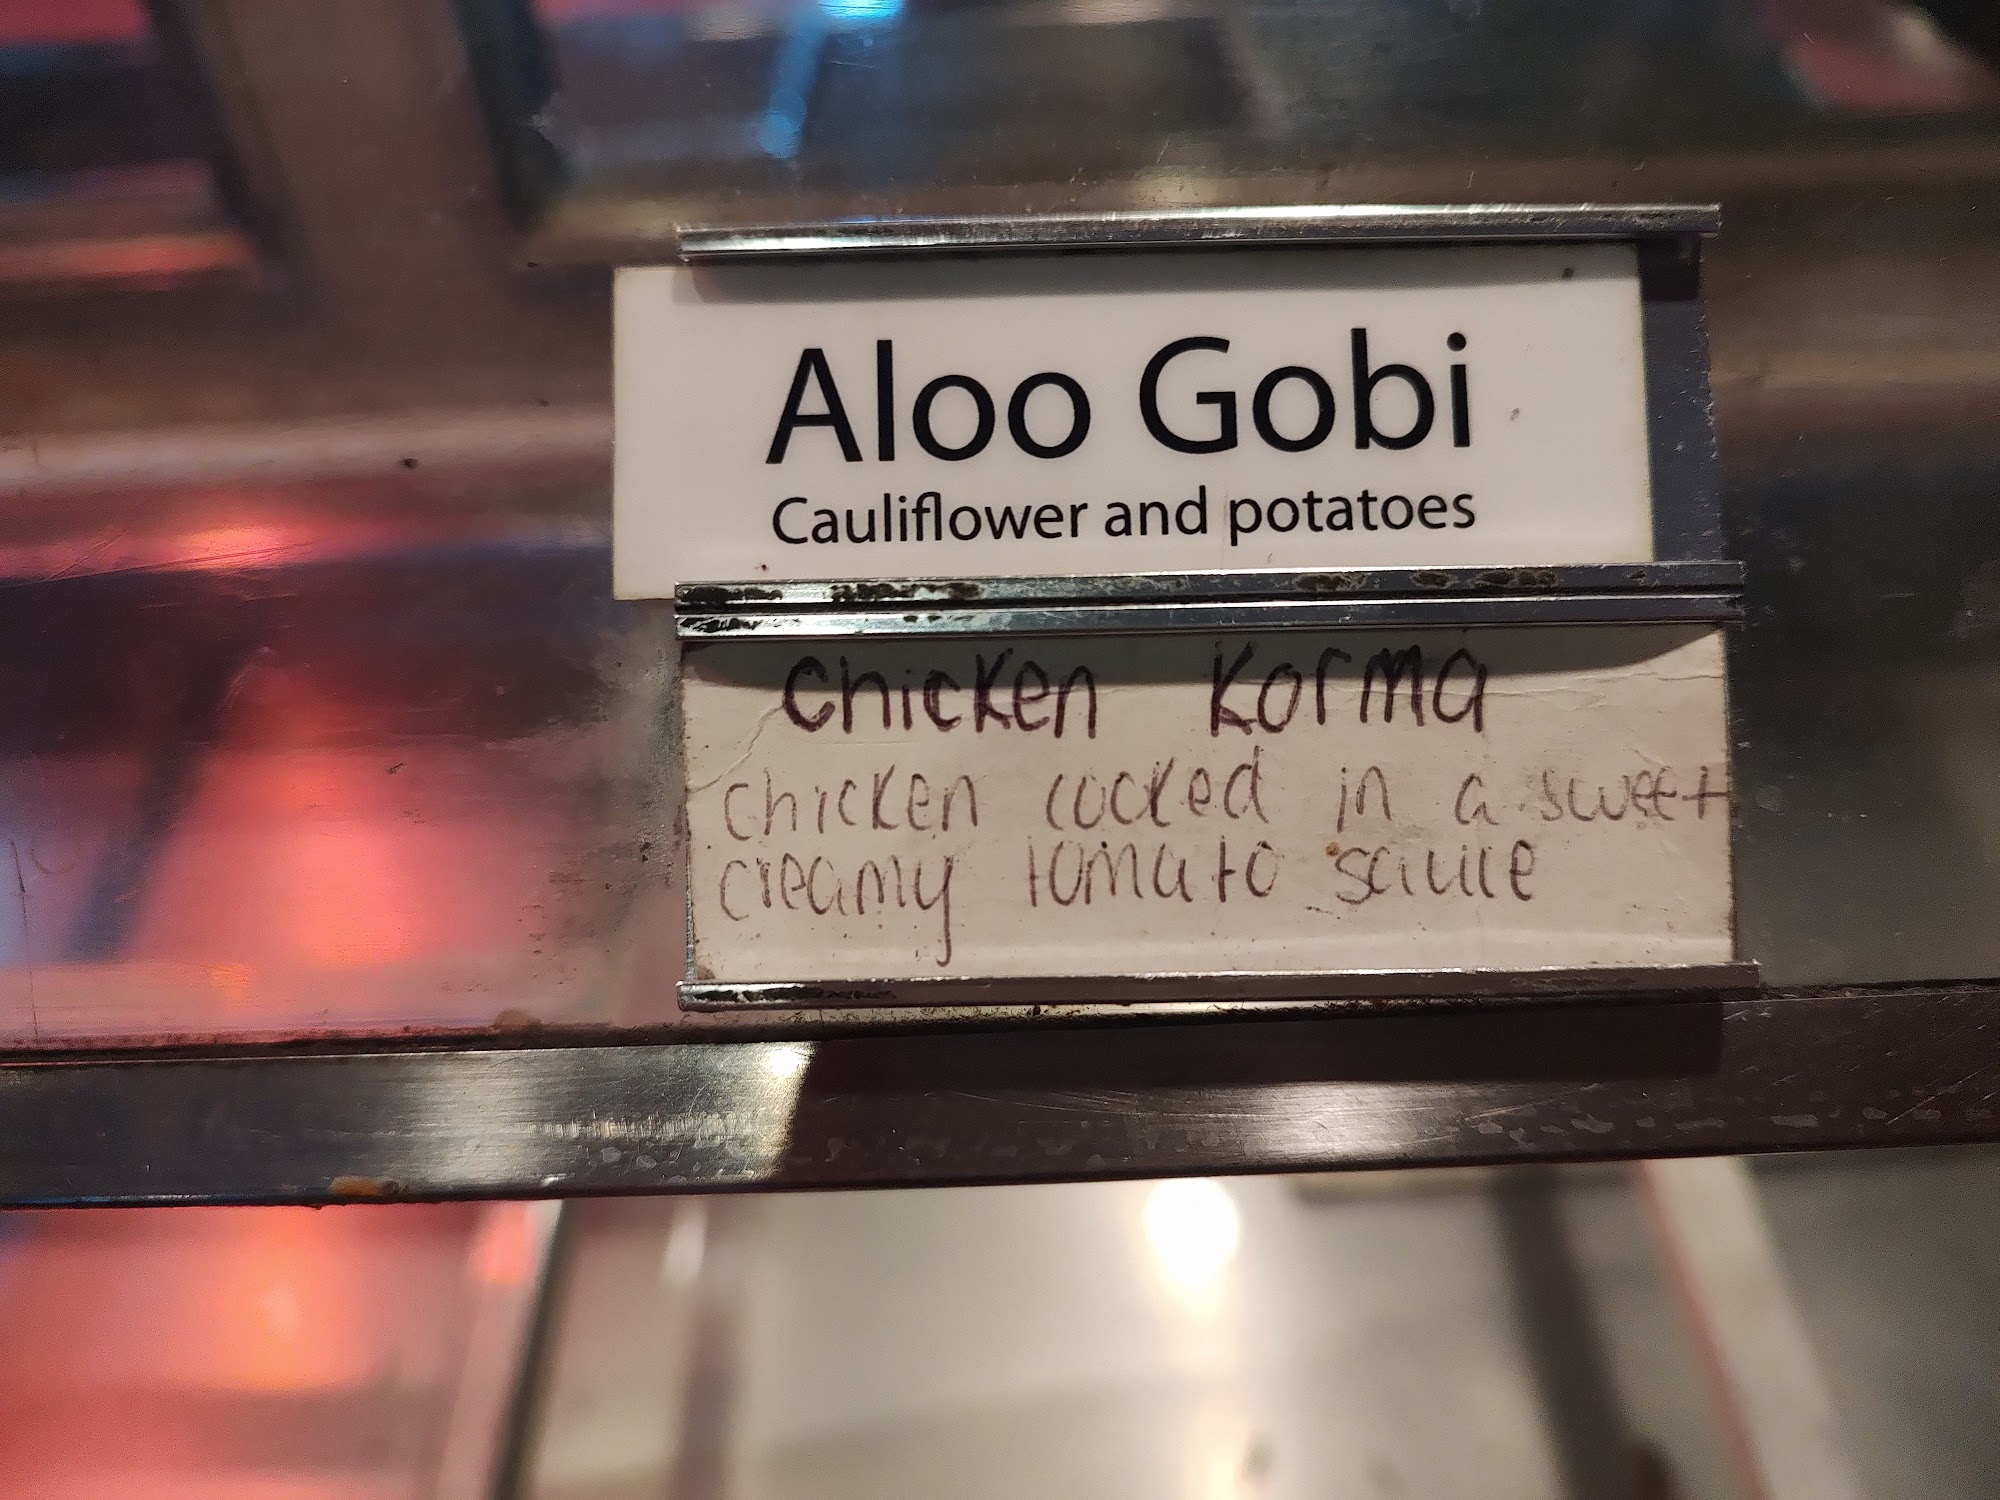 Aloo Gobi
Cauliflower and potatoes
Chicken Korma
chicken cooked in a sweet
creamy tomato sauce